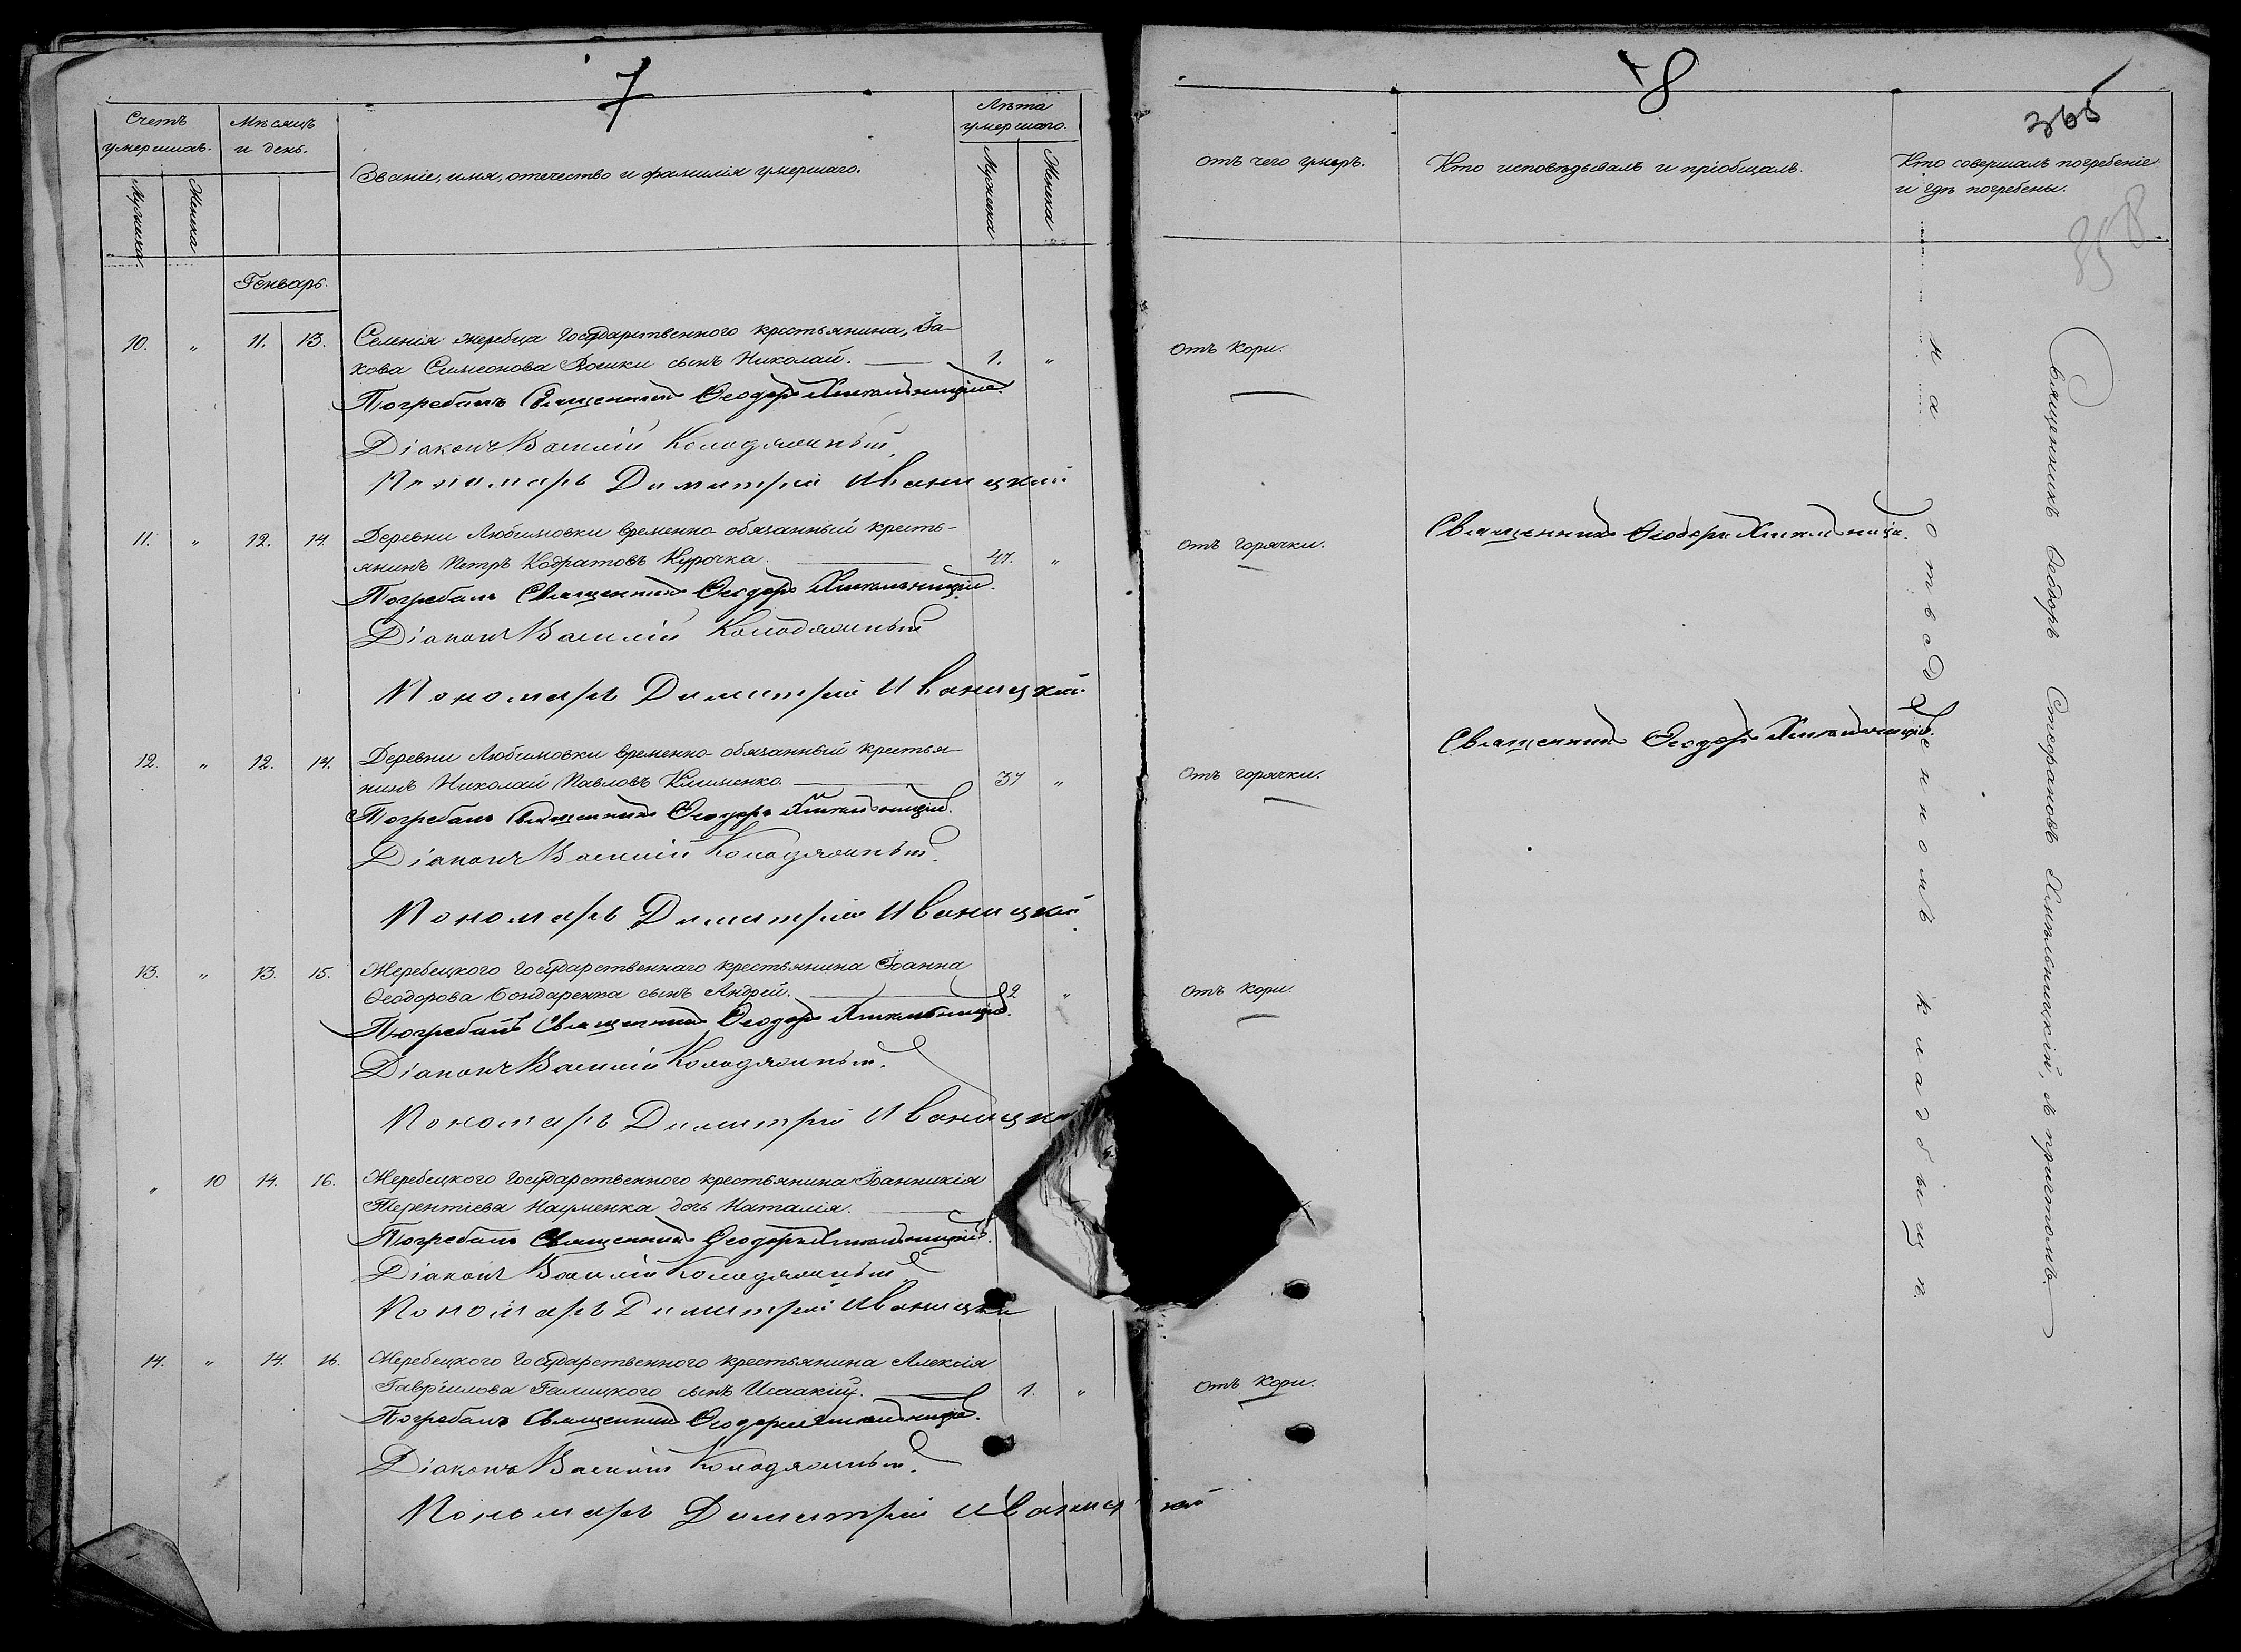 7
Счетъ умершихъ.
Мужеска.
Женска
Мѣсяцъ и день.
Званіе, имя, отчество и фамилія умершаго.
Лѣта умершаго.
Мужеска
Женска
Генварь.
10. " 11. 13. Селенія Жеребца Государственного крестьянина, Іа-
кова Симеонова сынъ Николай. — 1. "
Погребалъ Священникъ Ѳеодоръ Хмельницкій
Діаконъ Василій Колодяжный
Пономарь Димитрій Иваницкій
11. " 12. 14. Деревни Любимовки временно-обязанный кресть-
янинъ Петръ Кодратовъ Курочка. — 47. "
Погребалъ Священникъ Ѳеодоръ Хмельницкій.
Діаконъ Василій Колодяжный
Пономарь Димитрій Иваницкій.
12. " 12. 14. Деревни Любимовки временно-обязанный крестья-
нинъ Николай Павловъ Клименко. — 37 "
Погребалъ Священникъ Ѳеодоръ Хмельницкій.
Діаконъ Василій Колодяжный.
Пономарь Димитрій Иваницкій.
13. " 13. 15. Жеребецкого Государственнаго крестьянина Іоанна
Ѳеодорова Бондаренка сынъ Андрей. — 2 "
Погребалъ Священникъ Ѳеодоръ Хмельницкій.
Діаконъ Василій Колодяжный.
Пономарь Димитрій Иваницкій
" 10 14. 16. Жеребецкого Государственного крестьянина Іоанникія
Терентіева Науменка дочь Наталія. —
Погребалъ Священникъ Ѳеодоръ Хмельницкій.
Діаконъ Василій Колодяжный
Пономарь Димитрій Иваницкій
14. " 14. 16. Жеребецкого Государственного крестьянина Алексія
Гавріилова Галицкого сынъ Исаакій. — 1. "
Погребалъ Священникъ Ѳеодоръ Хмельницкій.
Діаконъ Василій Колодяжный.
Пономарь Димитрій Иваницкій
8
365
358
отъ чего умеръ.
Кто исповѣдывалъ и пріобщалъ.
Кто совершалъ погребеніе
и гдѣ погребены.
Отъ Кори.
отъ горячки.
Священникъ Ѳеодоръ Хмельницкій.
Священникъ Ѳеодоръ Хмельницкій.
Отъ горячки.
Отъ Кори.
Отъ Кори.
Священникъ Ѳеодоръ Стефановъ Хмѣльницкій, съ причтомъ.
на отведенномъ кладбищѣ.